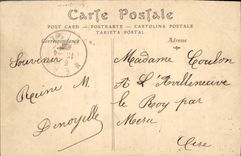 Carte Postale
POST CARD — POSTKARTE — CARTOLINA POSTALE
TARJETA POSTAL
Correspondance
Adresse
Souvenir
Reine M.
Denoyelle
Madame Coulon
A L'Avilleneuve
le Roy par
Meru
Oise